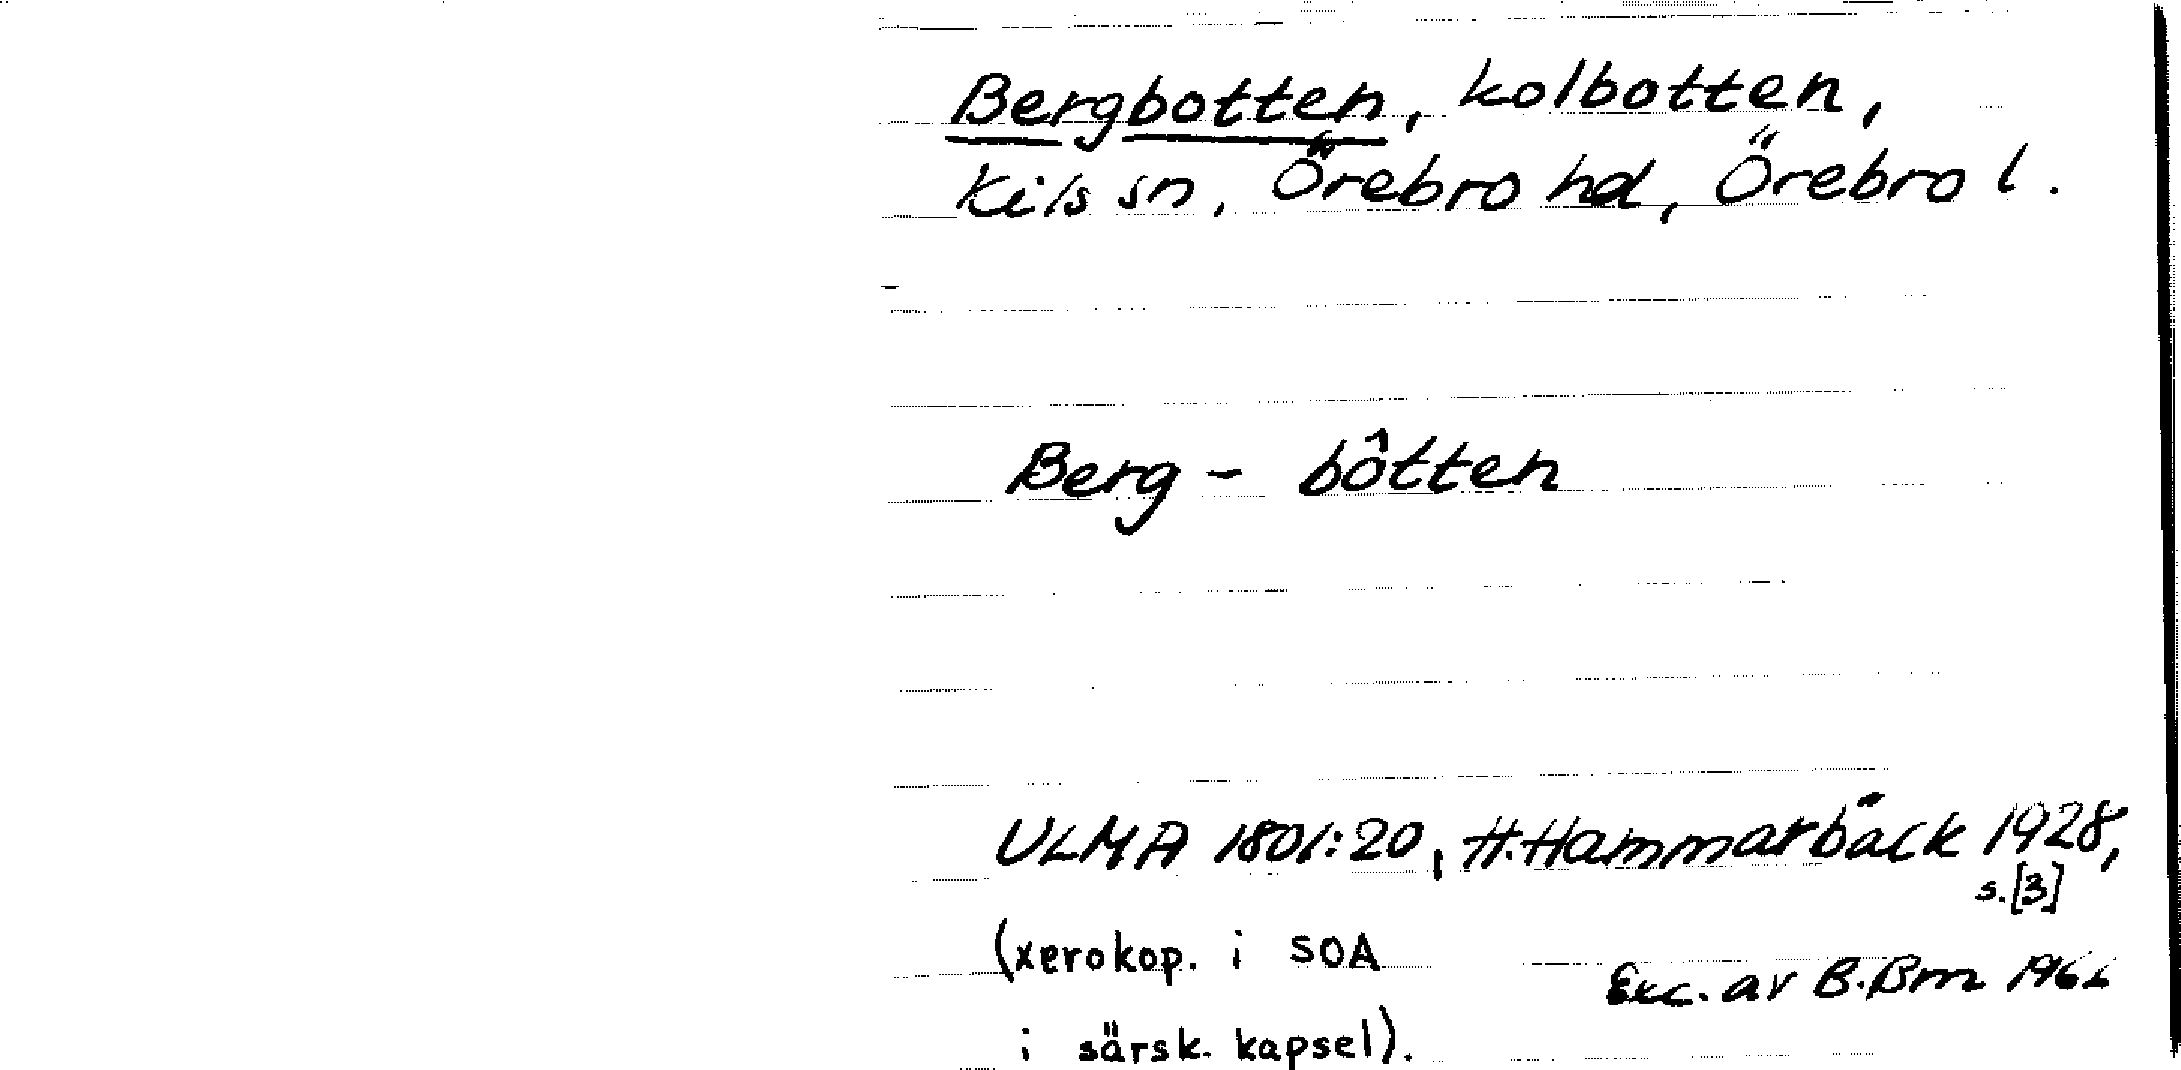 Bergbotten, kolbotten,
Kils sn, Örebro hd, Örebro l.
Berg - bôtten
ULMA 1801:20, H. Hammarbäck 1928,
s. [3]
(xerokop. i SOA
Exc. av B. Bm 1966
i särsk. kapsel).